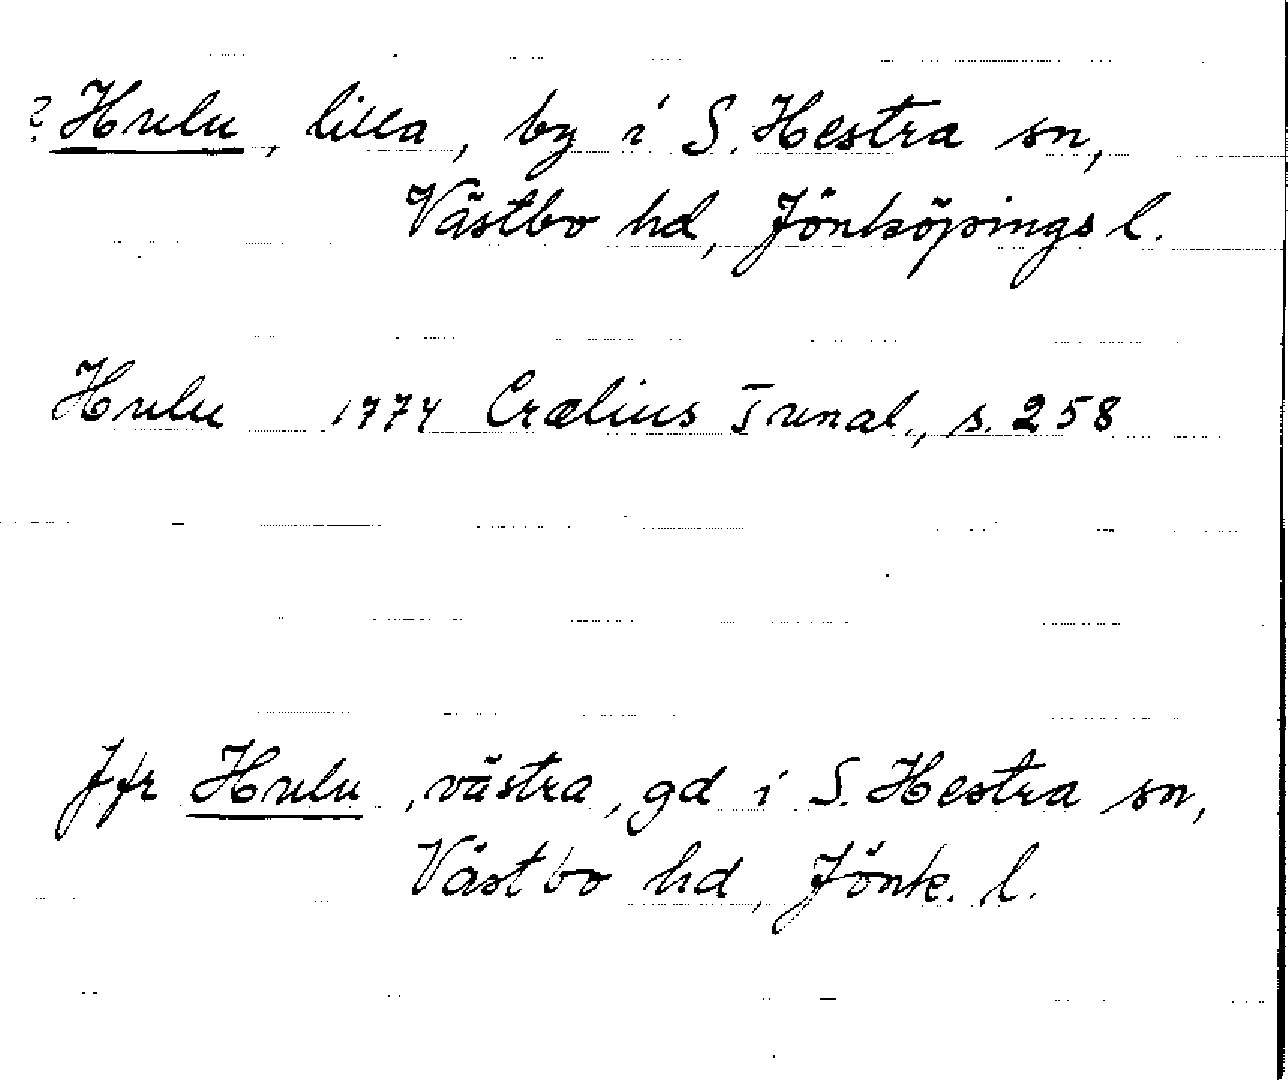 ? Hulu, lilla, by i S. Hestra sn,
Västbo hd, Jönköpings l.
Hulu 1774 Crælius Tunal., s. 258
Jfr Hulu, västra, gd i S. Hestra sn,
Västbo hd, Jönk. l.